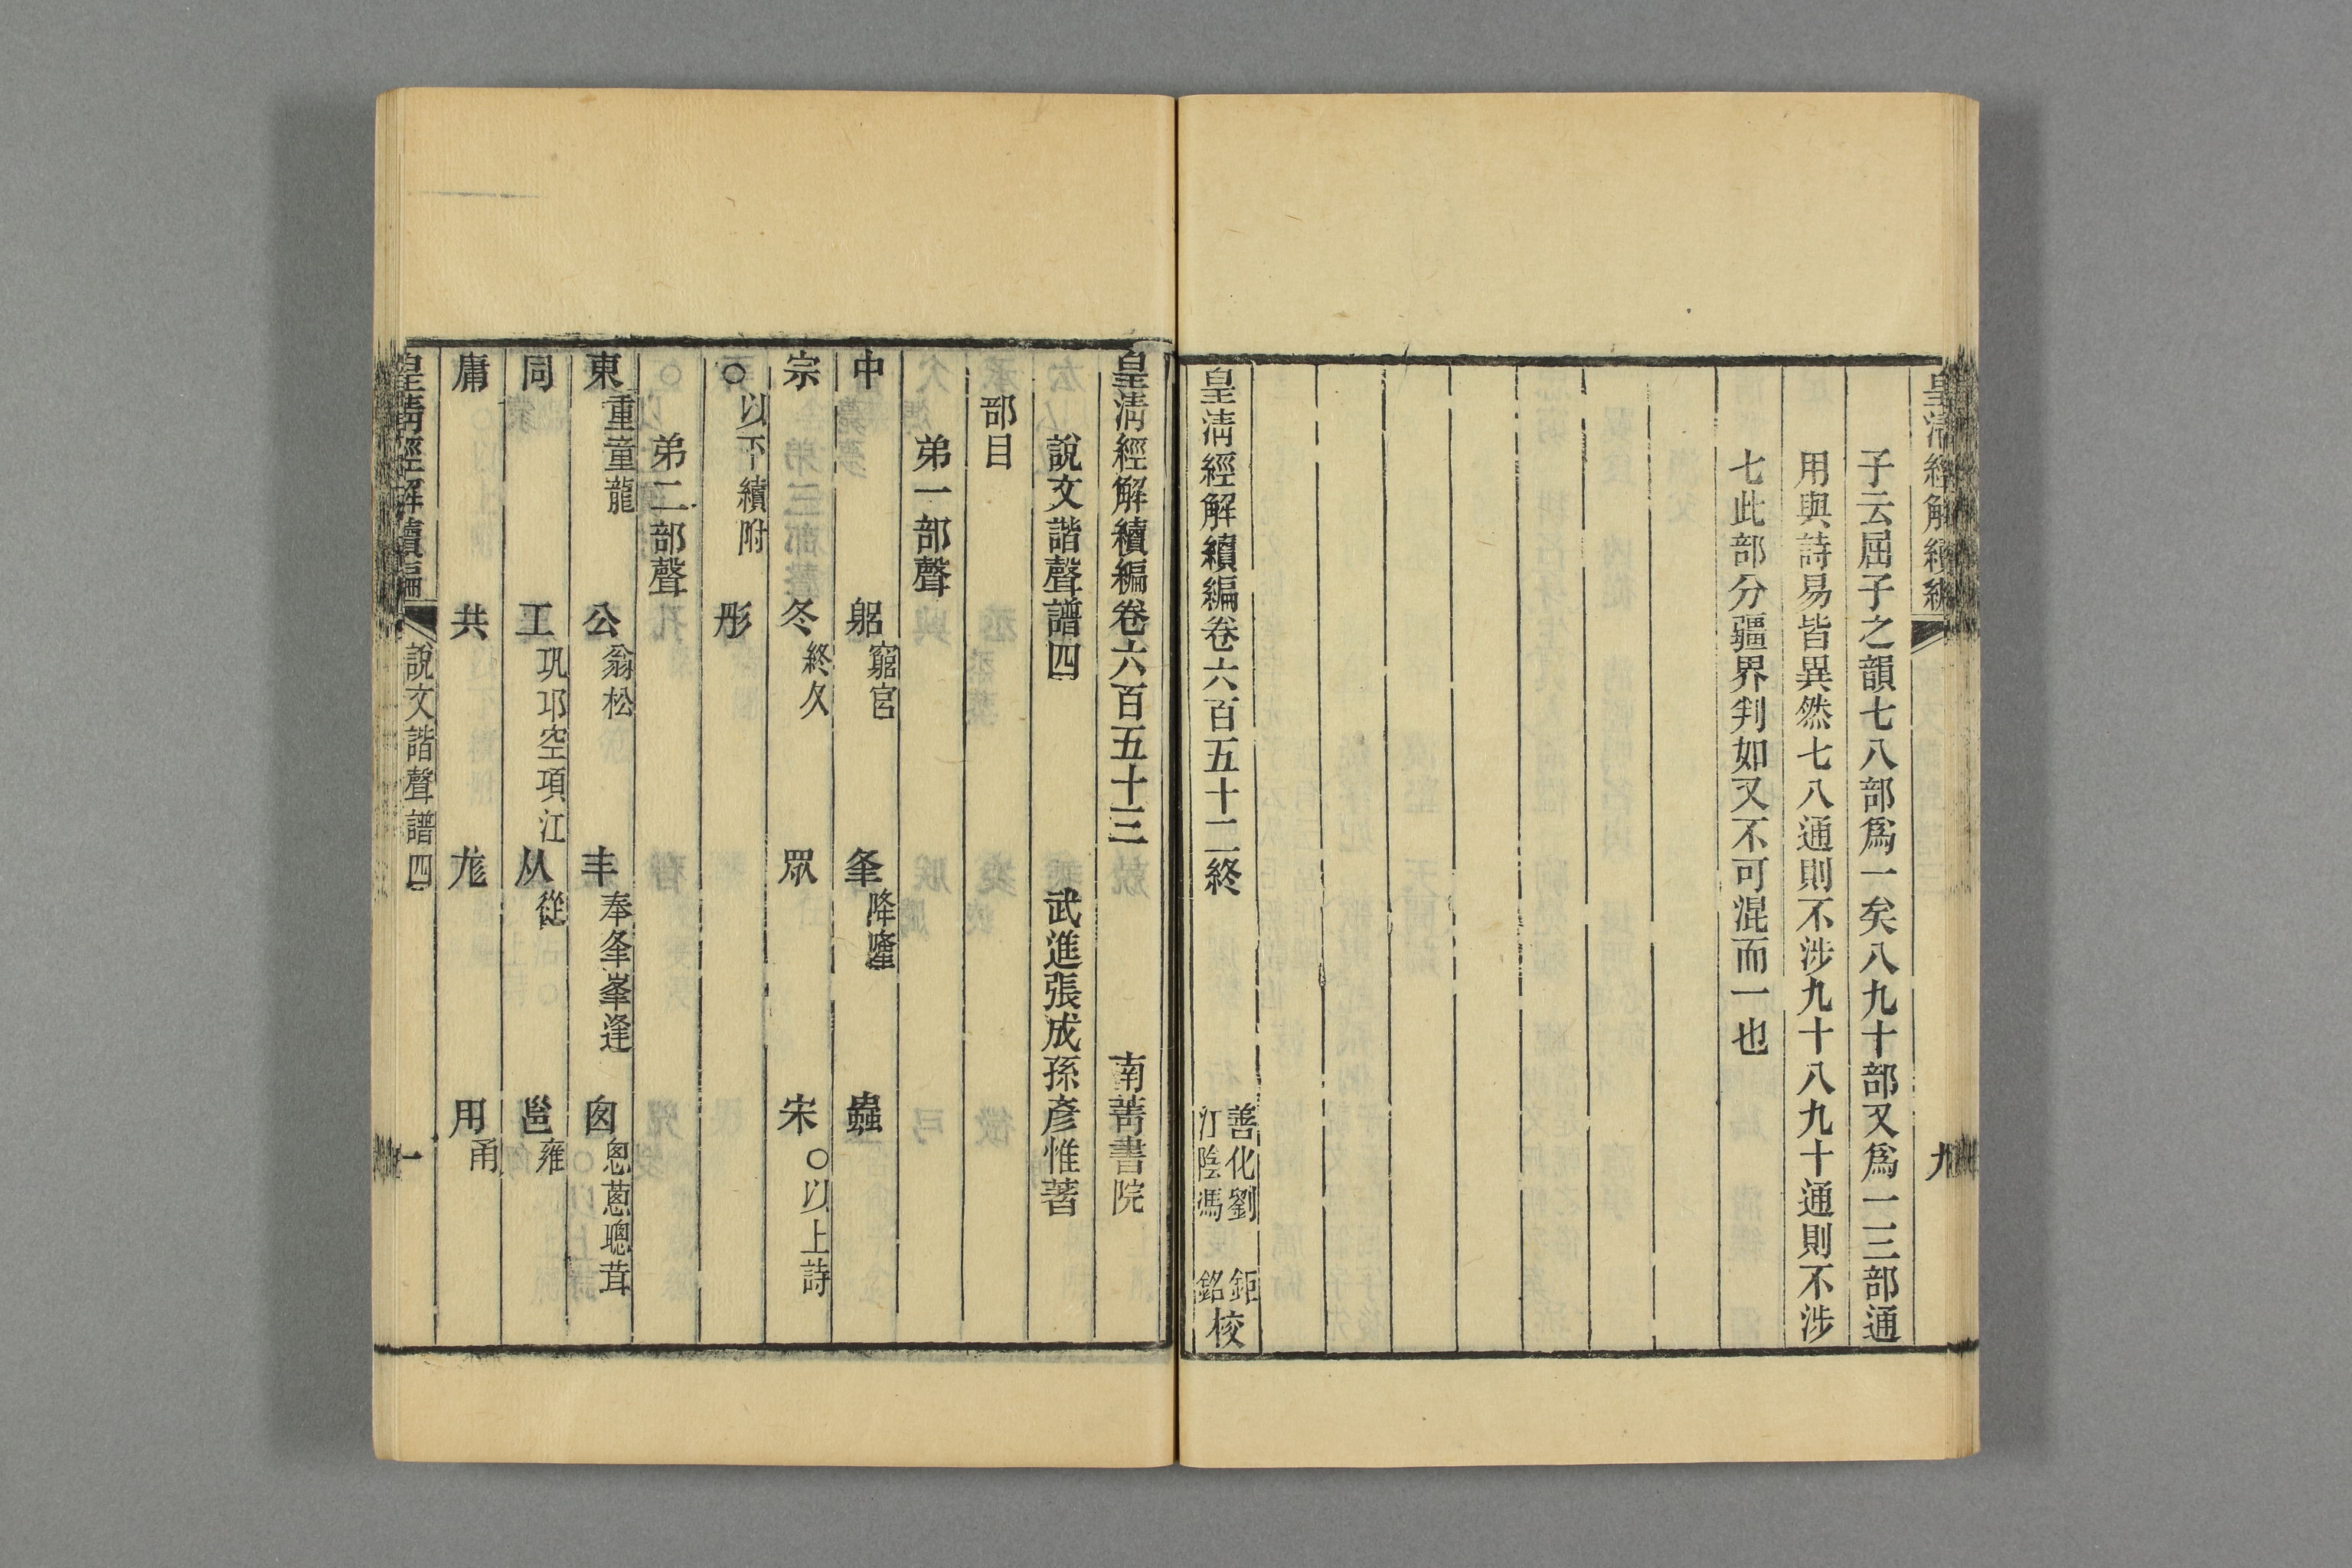 皇清經解續編 九
子云屈子之韻七八部爲一矣八九十部又爲一三部通
用與詩易皆異然七八通則不涉九十八九十通則不涉
七此部分疆界判如又不可混而一也
皇清經解續編卷六百五十二終 善化劉鉅 江陰馮銘 校
皇清經解續編卷六百五十三 南菁書院
說文諧聲譜四 武進張成孫彥惟著
部目
弟一部聲
中 躳窮宮 夅降隆 蟲
宗 冬終夂 眾 宋○以上詩
○以下續附 彤
弟二部聲
東重童龍 公翁松 丰奉夆峯逢 囪悤蔥聰茸
同 工巩邛空項江 从從 邕雍
庸 共 尨 用甬
皇清經解續編 說文諧聲譜四 一